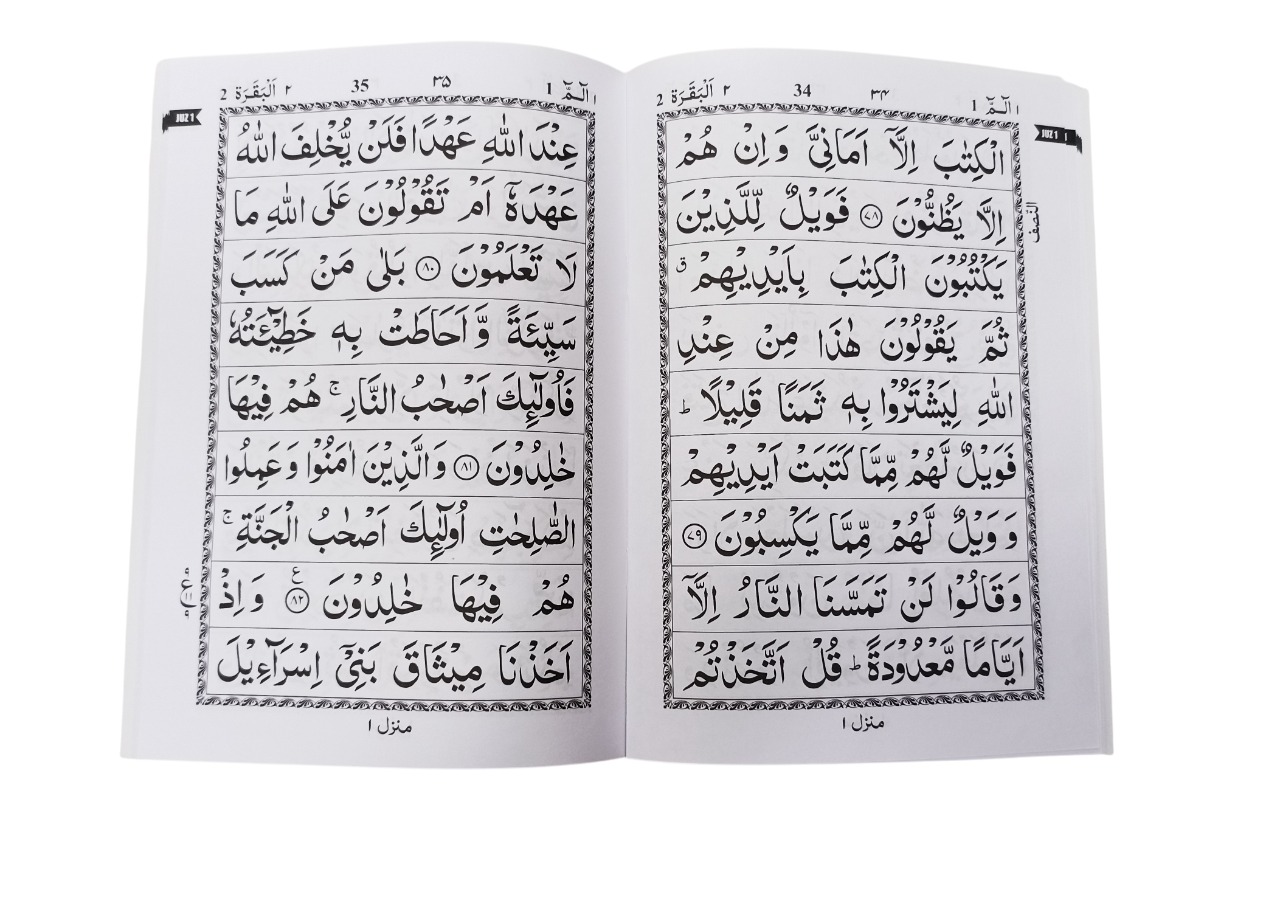 ١ الٓـمّٓ 1
٣٤ 34
٢ اَلْبَقَرَة 2
JUZ 1 ١
النصف
الْكِتٰبَ اِلَّاۤ اَمَانِیَّ وَ اِنْ هُمْ
اِلَّا یَظُنُّوْنَ ﴿٧٨﴾ فَوَیْلٌ لِّلَّذِیْنَ
یَكْتُبُوْنَ الْكِتٰبَ بِاَیْدِیْهِمْ ق
ثُمَّ یَقُوْلُوْنَ هٰذَا مِنْ عِنْدِ
اللّٰهِ لِیَشْتَرُوْا بِهٖ ثَمَنًا قَلِیْلًا ؕ
فَوَیْلٌ لَّهُمْ مِّمَّا كَتَبَتْ اَیْدِیْهِمْ
وَ وَیْلٌ لَّهُمْ مِّمَّا یَكْسِبُوْنَ ﴿٧٩﴾
وَ قَالُوْا لَنْ تَمَسَّنَا النَّارُ اِلَّاۤ
اَیَّامًا مَّعْدُوْدَةً ؕ قُلْ اَتَّخَذْتُمْ
منزل ١
١ الٓـمّٓ 1
٣٥ 35
٢ اَلْبَقَرَة 2
JUZ 1
عِنْدَ اللّٰهِ عَهْدًا فَلَنْ یُّخْلِفَ اللّٰهُ
عَهْدَهٗۤ اَمْ تَقُوْلُوْنَ عَلَی اللّٰهِ مَا
لَا تَعْلَمُوْنَ ﴿٨٠﴾ بَلٰی مَنْ كَسَبَ
سَیِّئَةً وَّ اَحَاطَتْ بِهٖ خَطِیْٓئَتُهٗ
فَاُولٰٓئِكَ اَصْحٰبُ النَّارِ ۚ هُمْ فِیْهَا
خٰلِدُوْنَ ﴿٨١﴾ وَ الَّذِیْنَ اٰمَنُوْا وَ عَمِلُوا
الصّٰلِحٰتِ اُولٰٓئِكَ اَصْحٰبُ الْجَنَّةِ ۚ
هُمْ فِیْهَا خٰلِدُوْنَ ﴿٨٢﴾ ع وَ اِذْ
اَخَذْنَا مِیْثَاقَ بَنِیْۤ اِسْرَآءِیْلَ
منزل ١